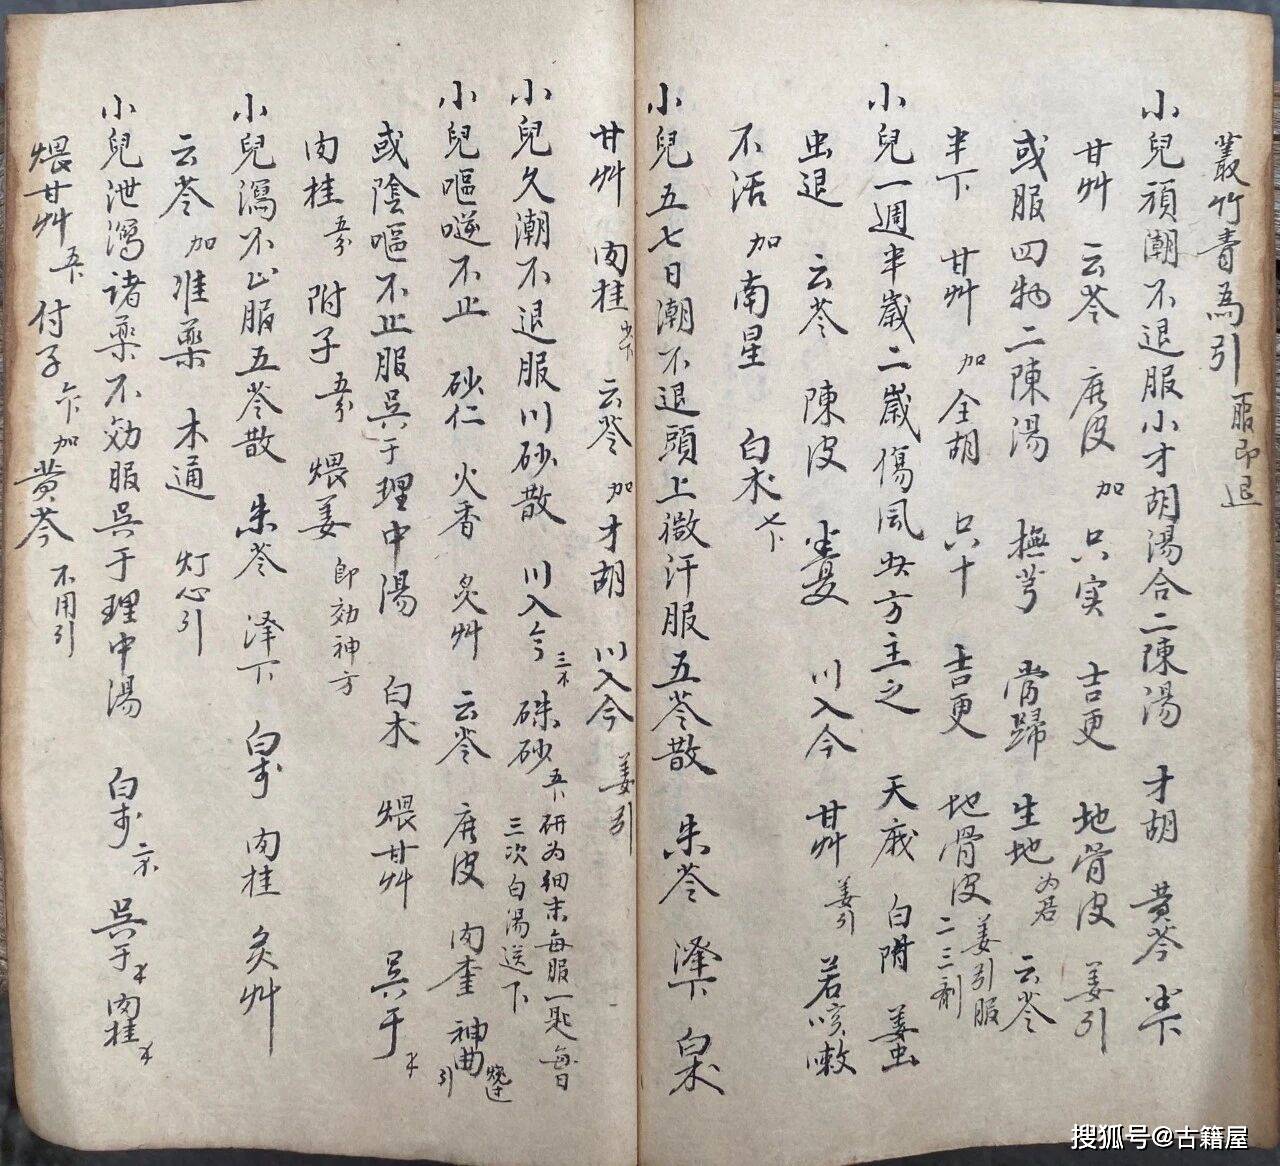 叢竹青為引 服即退
小兒頑潮不退服小才胡湯合二陳湯 才胡 黄芩 半下
甘艸 云苓 陳皮 加 只实 吉更 地骨皮 姜引
或服四物二陳湯 撫芎 當歸 生地 为君 云苓
半下 甘艸 加 全胡 只十 吉更 地骨皮 姜引服二三剤
小兒一週半歲二歲傷風此方主之 天麻 白附 姜虫
虫退 云苓 陳皮 半夏 川入今 甘艸 姜引 若咳嗽
不活 加南星 白术
小兒五七日潮不退頭上微汗服五苓散 朱苓 澤下 白术
甘艸 肉桂 云苓 加 才胡 川入今 姜引
小兒久潮不退服川砂散 川入今 硃砂 研为细末每服一匙每日三次白湯送下
小兒嘔噠不止 砂仁 火香 炙艸 云苓 陳皮 肉桂 神曲 引
或陰嘔不止服吳于理中湯 白术 煨甘艸 吳于
肉桂 附子 煨姜 即効神方
小兒瀉不止服五苓散 朱苓 泽下 白术 肉桂 炙艸
云苓 加 准藥 木通 灯心引
小兒泄瀉诸藥不効服吳于理中湯 白术 吳于 肉桂
煨甘艸 付子 加 黄芩 不用引
搜狐号@古籍屋